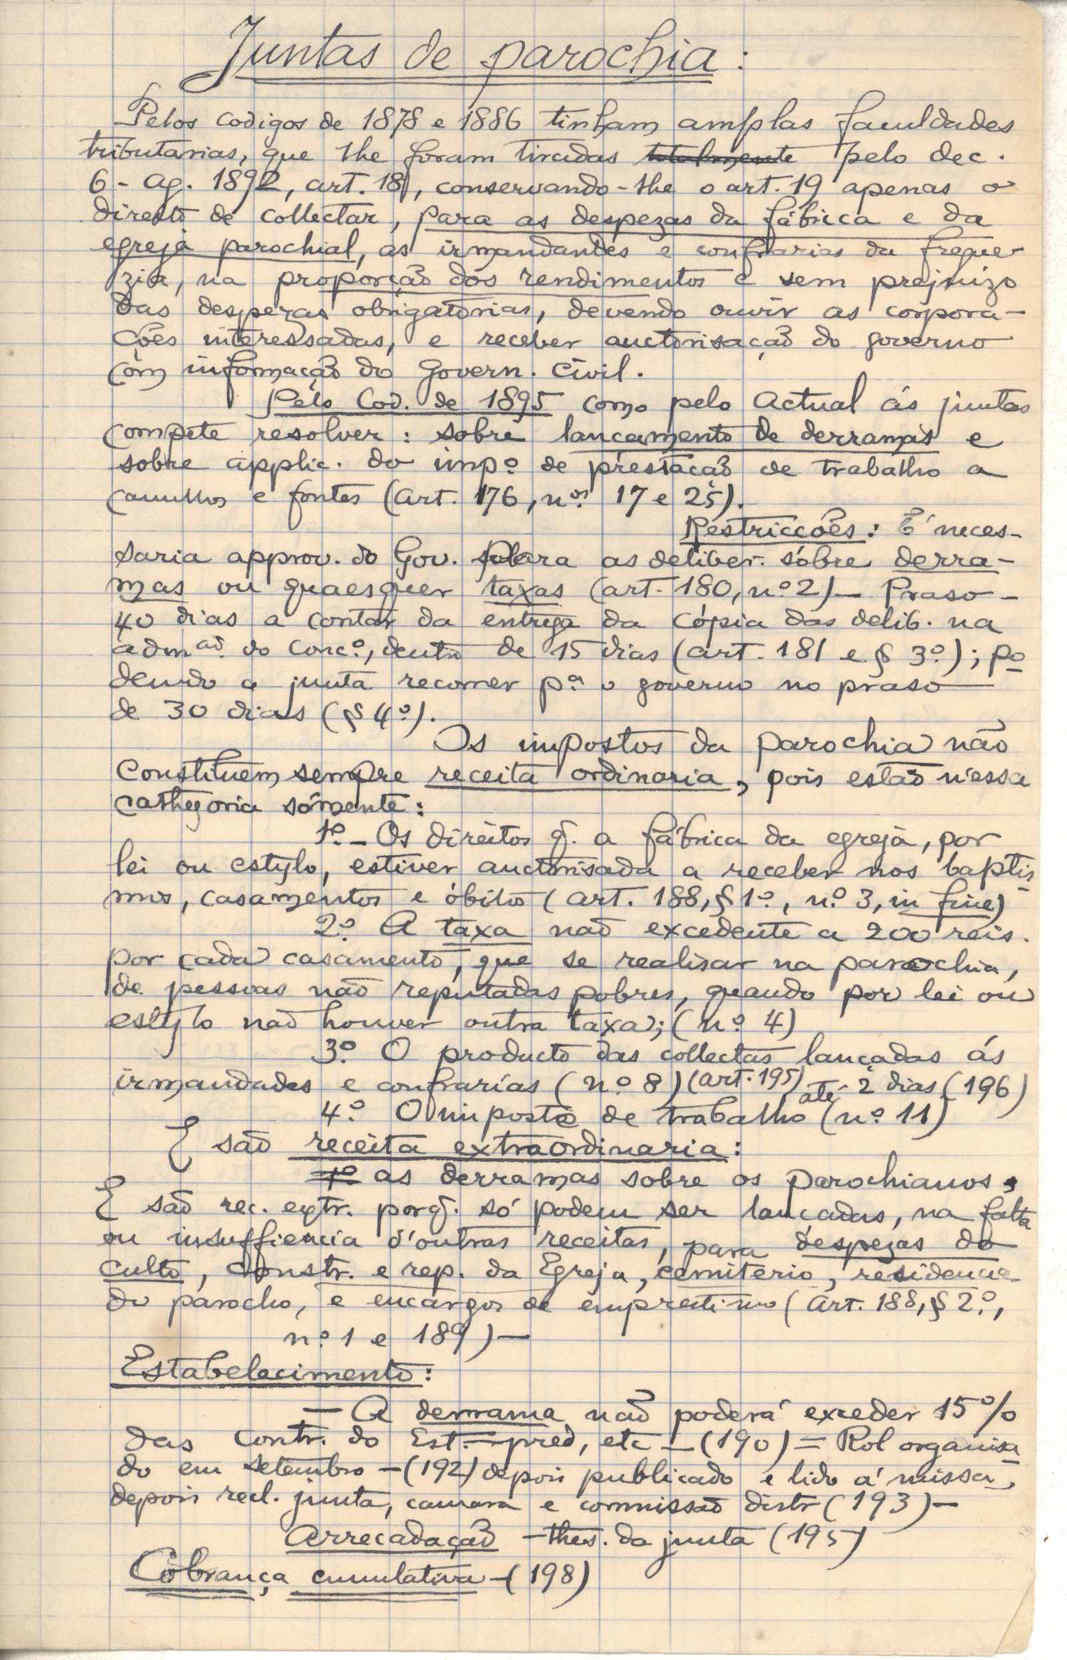 Juntas de parochia:
Pelos codigos de 1878 e 1886 tinham amplas faculdades
tributarias, que lhe foram tiradas totalmente pelo dec.
6 - ag. 1892, art. 18, conservando-lhe o art. 19 apenas o
direito de collectar, para as despezas da fábrica e da
egreja parochial, as irmandades e confrarias da fregue-
zia, na proporção dos rendimentos e sem prejuizo
das despezas obrigatorias, devendo ouvir as corpora-
ções interessadas, e receber auctorisação do governo
com informação do Govern. Civil.
Pelo Cod. de 1895 como pelo actual ás juntas
compete resolver: sobre lançamento de derramas e
sobre applic. do impº de prestação de trabalho a
caminhos e fontes (art. 176, nos 17 e 25).
Restricções: É neces-
saria approv. do Gov. para as deliber. sôbre derra-
mas ou quaesquer taxas (art. 180, nº 2) — Praso -
40 dias a contar da entrega da cópia das delib. na
admão do concº, dentro de 15 dias (art. 181 e § 3º); po-
dendo a junta recorrer pª o governo no praso
de 30 dias (§ 4º).
Os impostos da parochia não
constituem sempre receita ordinaria, pois estão n'essa
cathegoria sómente:
1º - Os direitos q. a fábrica da egreja, por
lei ou estylo, estiver auctorisada a receber nos baptis-
mos, casamentos e óbitos (art. 188, § 1º, nº 3, in fine)
2º A taxa não excedente a 200 reis.
por cada casamento, que se realisar na parochia,
de pessoas não reputadas pobres, quando por lei ou
estylo não houver outra taxa; (nº 4)
3º O producto das collectas lançadas ás
irmandades e confrarias (nº 8) (art. 195)
4º O imposto de trabalho até 2 dias (196) (nº 11)
E são receita extraordinaria:
1º as derramas sobre os parochianos.
E são rec. extr. porq. só podem ser lançadas, na falta
ou insufficiencia d'outras receitas, para despezas do
culto, constr. e rep. da Egreja, cemiterio, residencia
do parocho, e encargos de emprestimo (art. 188, § 2º,
nº 1 e 189) —
Estabelecimento:
— A derrama não poderá exceder 15%
das contr. do Est. - pred, etc - (190) = Rol organisa-
do em setembro - (192) depois publicado e lido á missa,
depois recl. junta, camara e commissão distr (193) —
Arrecadação - thes. da junta (195)
Cobrança cumulativa - (198)